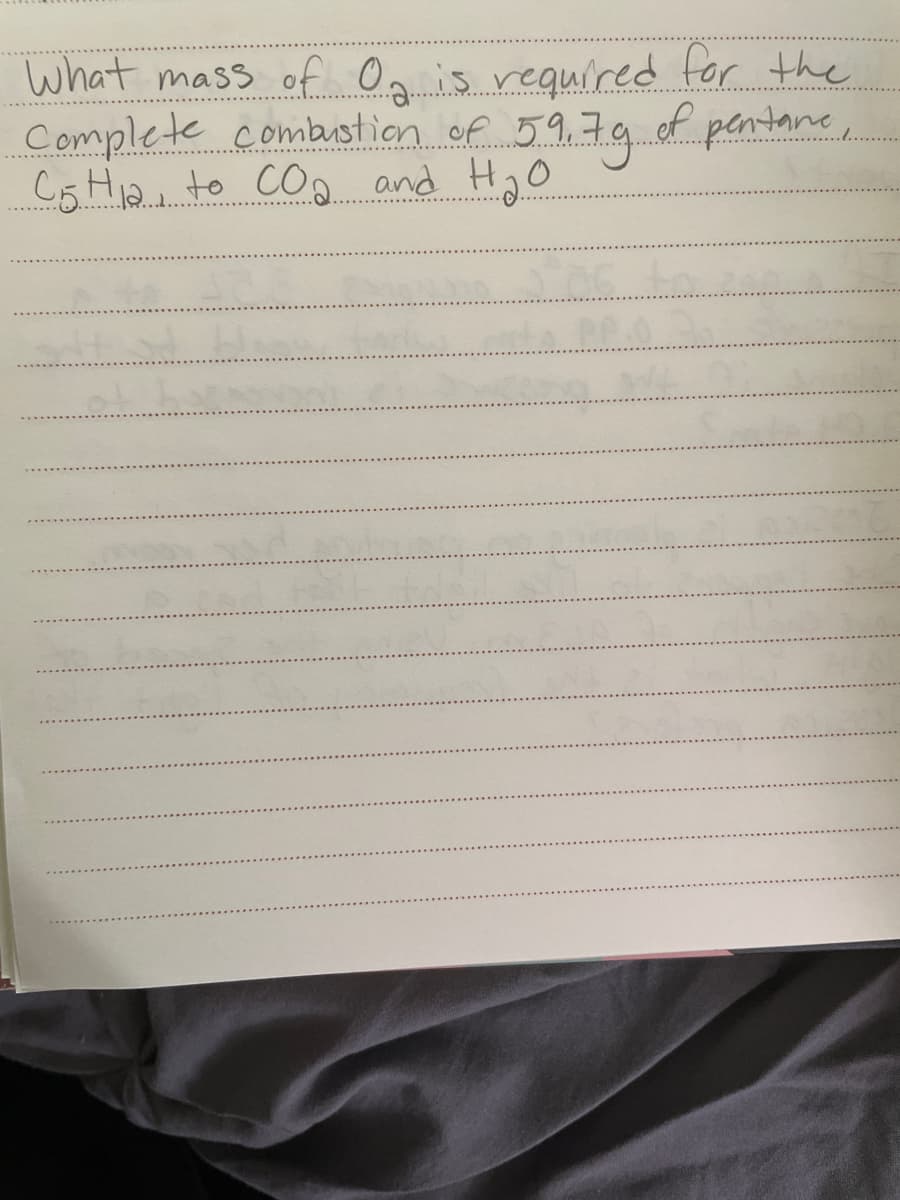 What mass of O₂ is required for the
Complete combustion of 59.7g of pentane,
C₅H₁₂, to CO₂ and H₂O